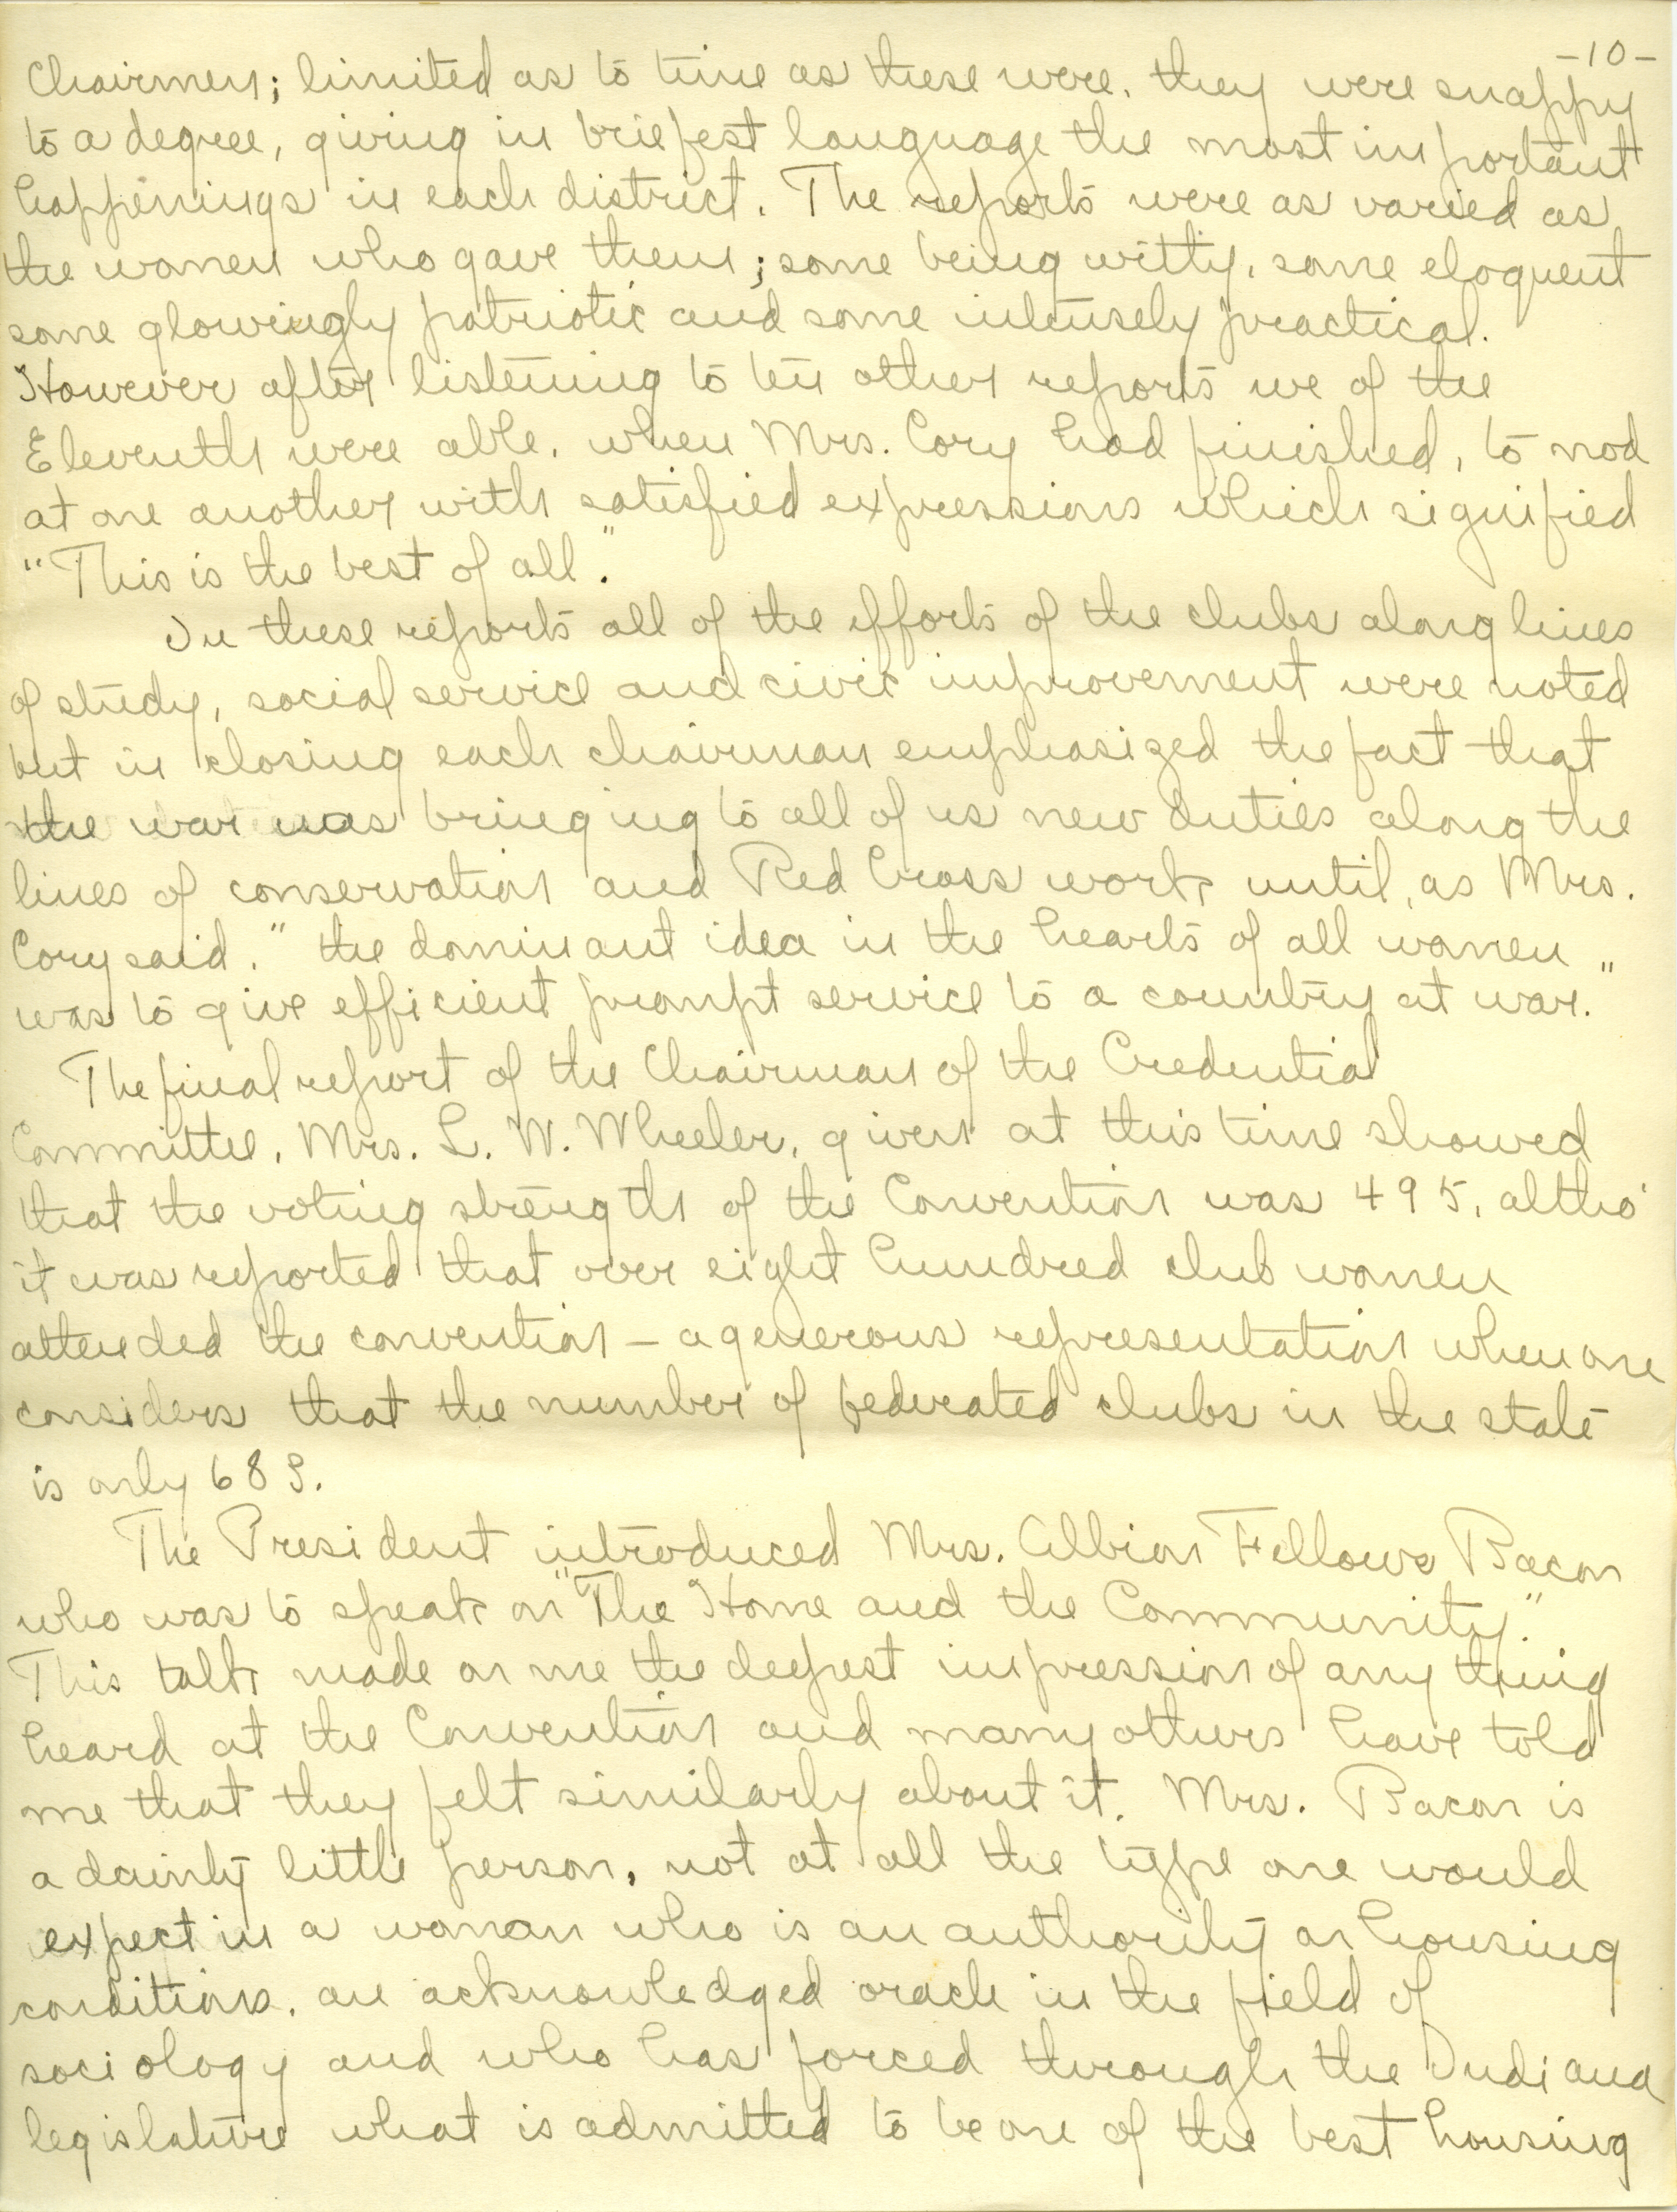 -10-
Chairmen; limited as to time as these were, they were snappy
to a degree, giving in briefest language the most important
happenings in each district. The reports were as varied as
the women who gave them; some being witty, some eloquent
some glowingly patriotic and some intensely practical.
However after listening to ten other reports we of the
Eleventh were able, when Mrs. Cory had finished, to nod
at one another with satisfied expressions which signified
"This is the best of all."
In these reports all of the efforts of the clubs along lines
of study, social service and civic improvement were noted
but in closing each chairman emphasized the fact that
the war was bringing to all of us new duties along the
lines of conservation and Red Cross work until, as Mrs.
Cory said, "the dominant idea in the hearts of all women
was to give efficient prompt service to a country at war."
The final report of the Chairman of the Credential
Committee, Mrs. L. W. Wheeler, given at this time showed
that the voting strength of the Convention was 495, altho'
it was reported that over eight hundred club women
attended the convention - a generous representation when one
considers that the number of federated clubs in the state
is only 689.
The President introduced Mrs. Albion Fellows Bacon
who was to speak on "The Home and the Community."
This talk made on me the deepest impression of any thing
heard at the Convention and many others have told
me that they felt similarly about it. Mrs. Bacon is
a dainty little person, not at all the type one would
expect in a woman who is an authority on housing
conditions, an acknowledged oracle in the field of
sociology and who has forced through the Indiana
legislature what is admitted to be one of the best housing